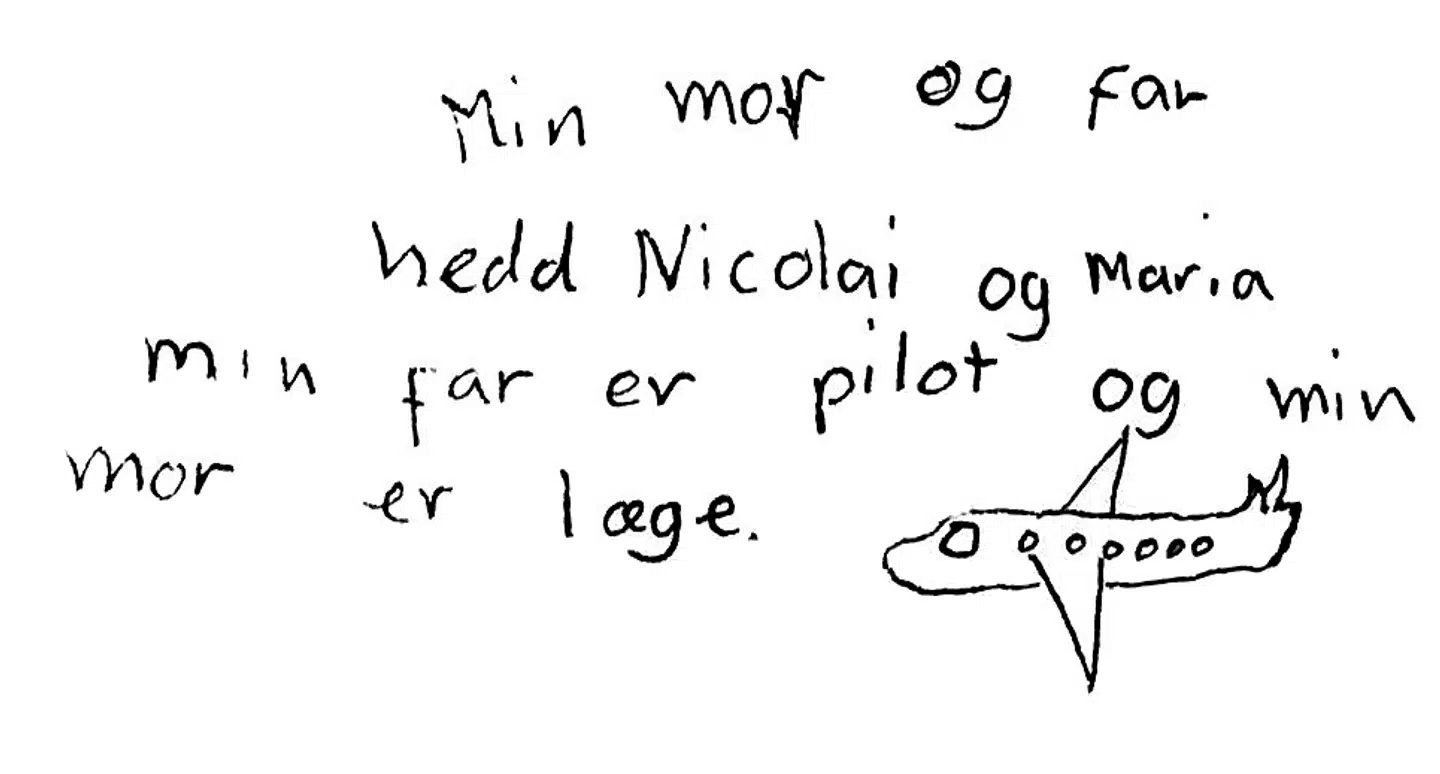 Min mor og far
hedd Nicolai og Maria
min far er pilot og min
mor er læge.